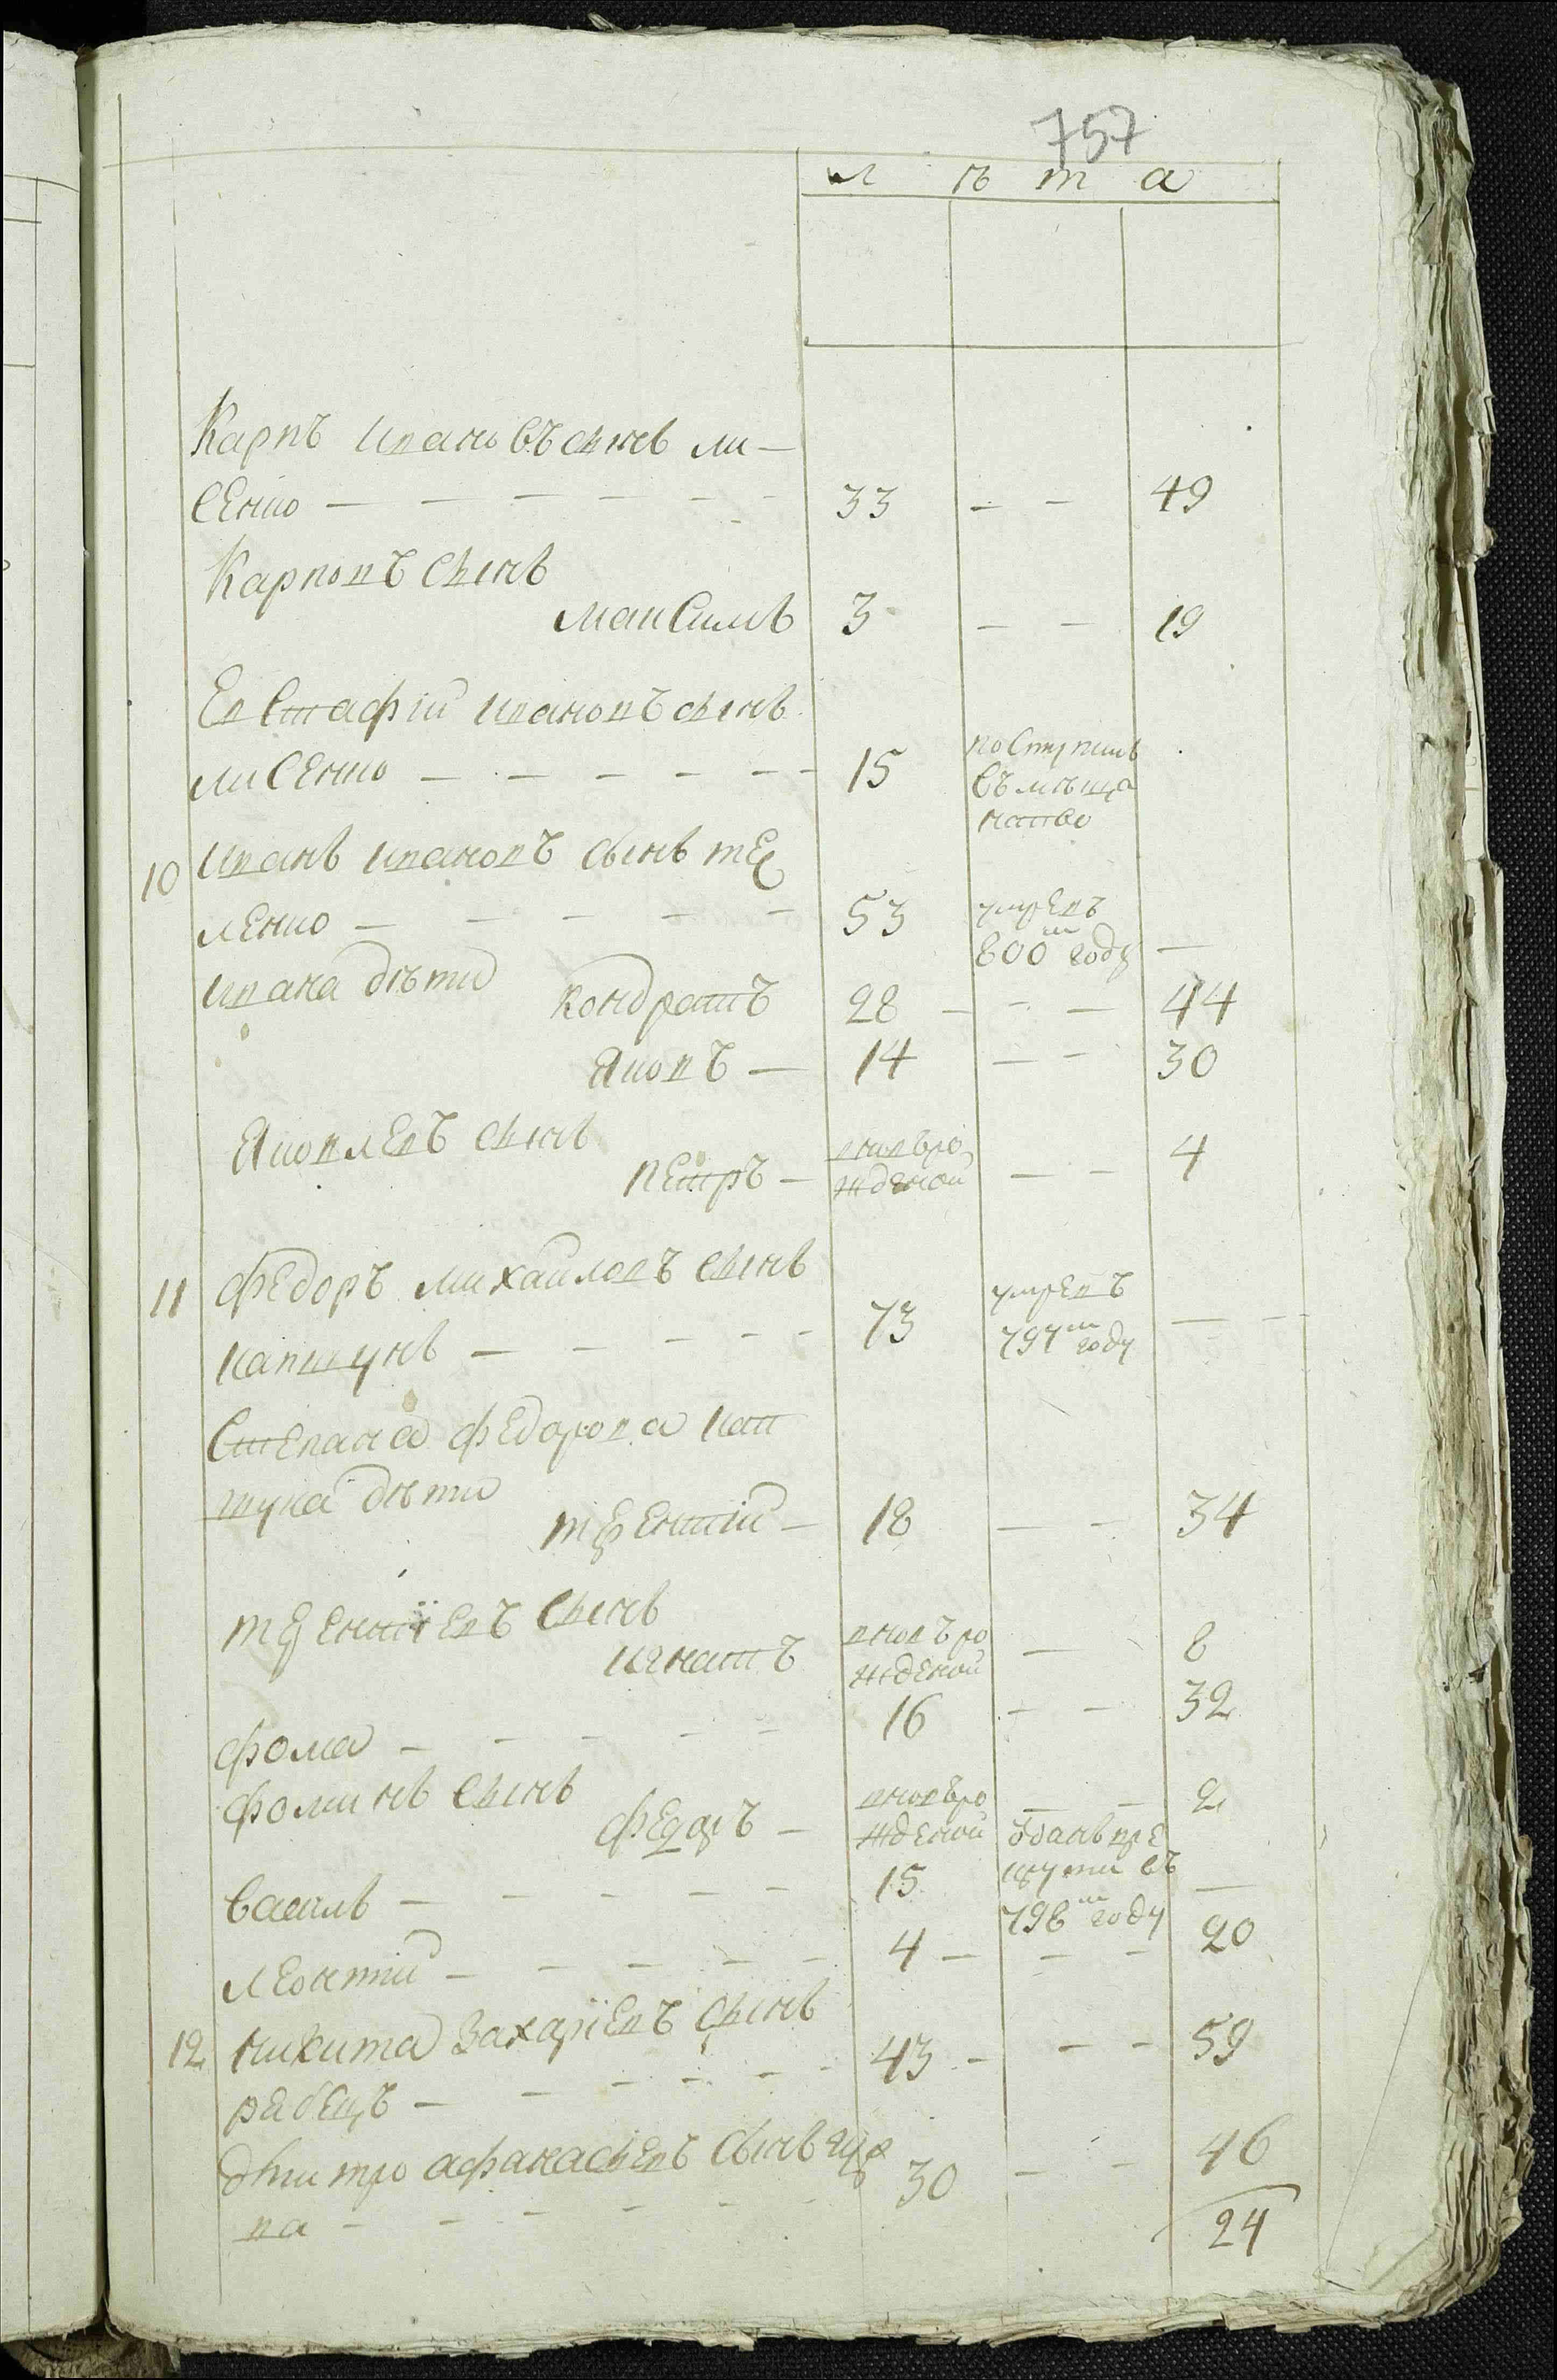 757
лѣта
Карпъ Ивановъ сынъ Ли-
сенко — — — — — — 33 — — 49
Карповъ сынъ
Максимъ 3 — — 19
Евстафій Ивановъ сынъ
Лисенко — — — — — — 15 поступилъ въ мѣщанство
10 Иванъ Ивановъ сынъ Те
ленко — — — — — 53 умревъ 800м году —
Ивана дѣти Кондратъ 28 — — — 44
Яковъ — 14 — — 30
Яковлевъ сынъ
Петръ — вновьрожденой — — 4
11 Федоръ Михайловъ сынъ
Каптунъ — — — — — 73 умревъ 797м году — —
Степана Федорова Кап
туна дѣти
Терентій — 18 — — 34
Терентіевъ сынъ
Игнатъ вновъ рожденой — 8
Фома — — — — — 16 — — 32
Фоминъ сынъ
Федоръ — вновьрожденой — — 2
Василь — — — — — 15 отданъ рекрути въ 798м году —
Леонтій — — — — — 4 — — — 20
12 Никита Захаріевъ сынъ
Рябецъ — — — — — — 43 — — — 59
Дмитро Афанасьевъ сынъ
ва — — — — — — 30 — — 46
24